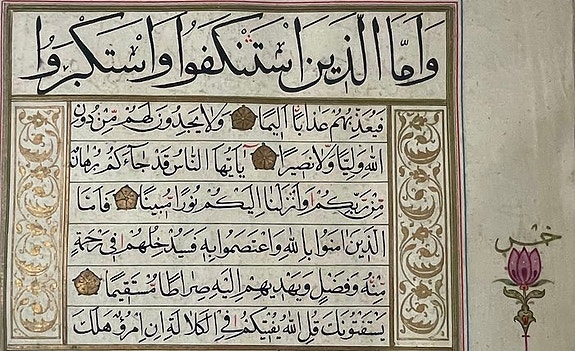 وَاَمَّا الَّذِينَ اسْتَنْكَفُوا وَاسْتَكْبَرُوا
فَيُعَذِّبُهُمْ عَذَابًا اَلِيمًا وَلَا يَجِدُونَ لَهُمْ مِنْ دُونِ
اللّٰهِ وَلِيًّا وَلَا نَصِيرًا يَا اَيُّهَا النَّاسُ قَدْ جَاءَكُمْ بُرْهَانٌ
مِنْ رَبِّكُمْ وَاَنْزَلْنَا اِلَيْكُمْ نُورًا مُبِينًا فَاَمَّا
الَّذِينَ اٰمَنُوا بِاللّٰهِ وَاعْتَصَمُوا بِهِ فَسَيُدْخِلُهُمْ فِي رَحْمَةٍ
مِنْهُ وَفَضْلٍ وَيَهْدِيهِمْ اِلَيْهِ صِرَاطًا مُسْتَقِيمًا
يَسْتَفْتُونَكَ قُلِ اللّٰهُ يُفْتِيكُمْ فِي الْكَلَالَةِ اِنِ امْرُؤٌ هَلَكَ